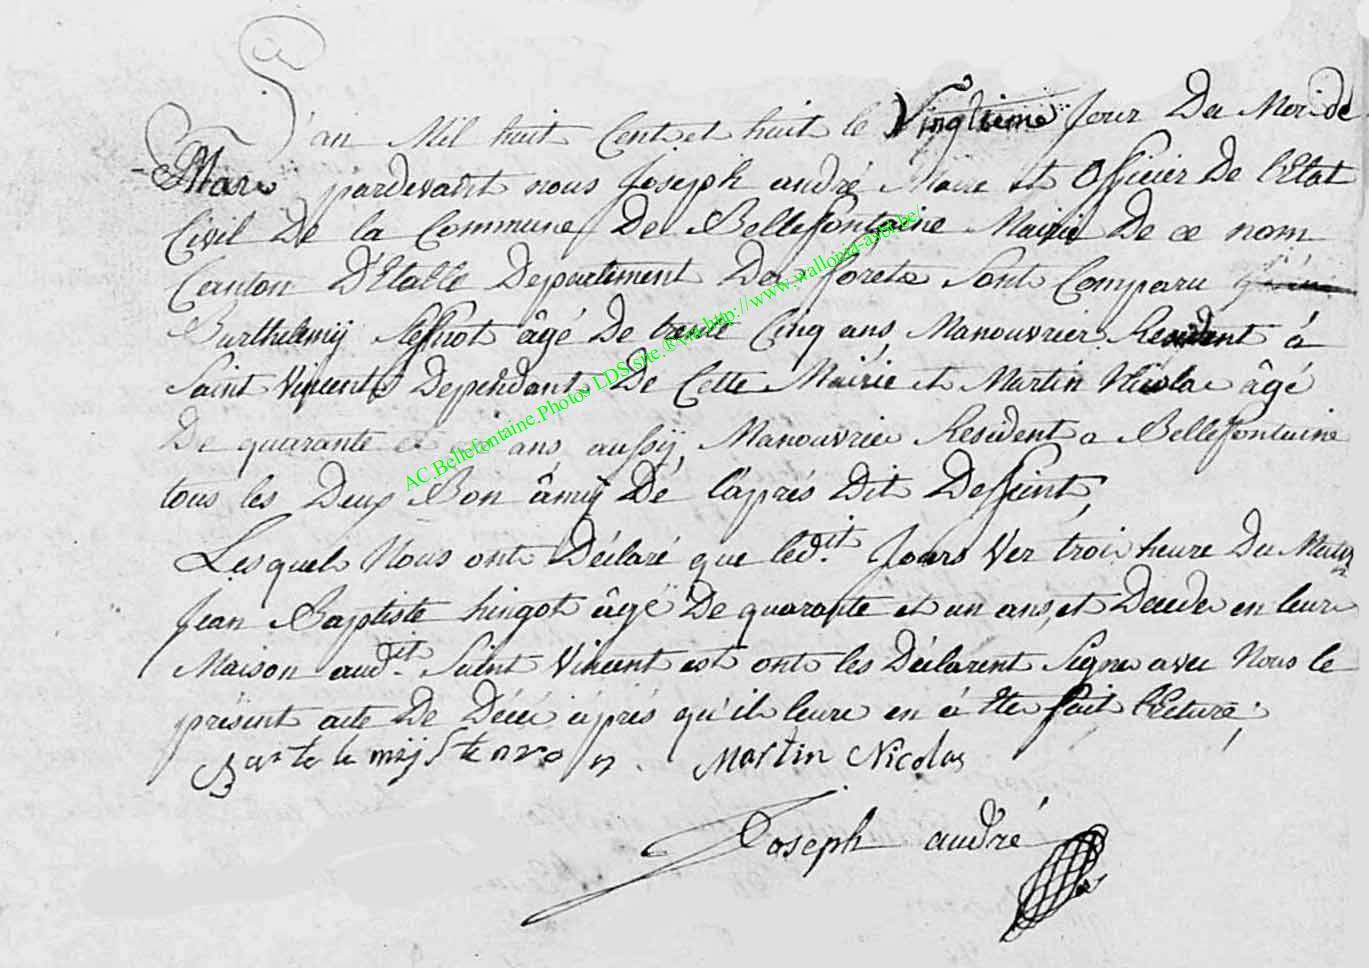 L'an Mil huit Cent et huit le Vingtieme Jour Du Mois de
Mars pardevant nous Joseph andré Maire et Officier De l'Etat
Civil De la Commune De Bellefontaine Mairie De ce nom
Canton D'Etalle Departement Des forets Sont Comparu
Barthelemij âgé De trente Cinq ans, Manouvrier Resident à
Saint Vincent Dependant De Cette Mairie et Martin Nicolas âgé
De quarante et ans aussij, Manouvrier Resident a Bellefontaine
tous les Deux Bon âmij Dé l'aprés Dit Deffunt,
Lesquels Nous ont Déclaré que ledit Jours Ver trois heure Du Matin
Jean Baptiste hingot âgé De quarante et un ans, et Decedé en leur
Maison audit Saint Vincent est ont les Déclarent Signe avec Nous le
présent acte De Décé àprés qu'il leure en à Ete fait lecture;
Martin Nicolas
Joseph andré
AC.Bellefontaine.Photos LDS(site.®via.http://www.wallonia-asbl.be/